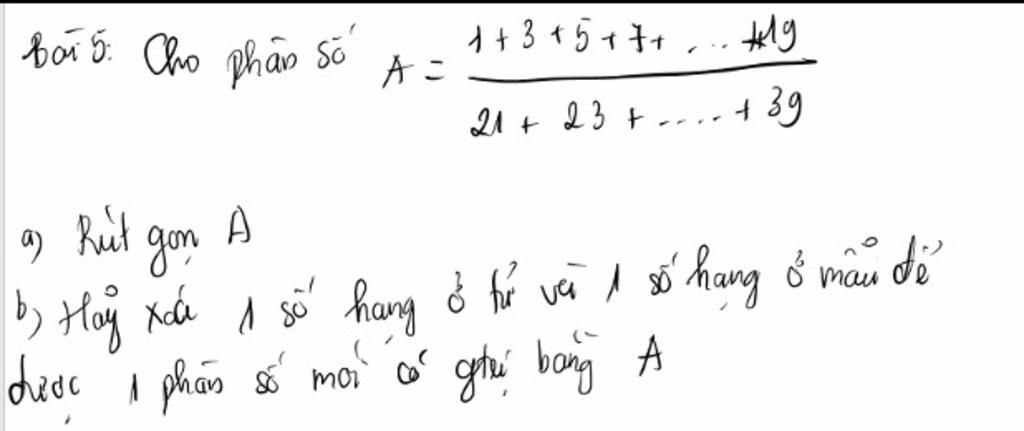 Bài 5: Cho phân số A = (1 + 3 + 5 + 7 + ... + 19) / (21 + 23 + ..... + 39)
a) Rút gọn A
b) Hãy xoá 1 số hạng ở tử và 1 số hạng ở mẫu để
được 1 phân số mới có gtrị bằng A